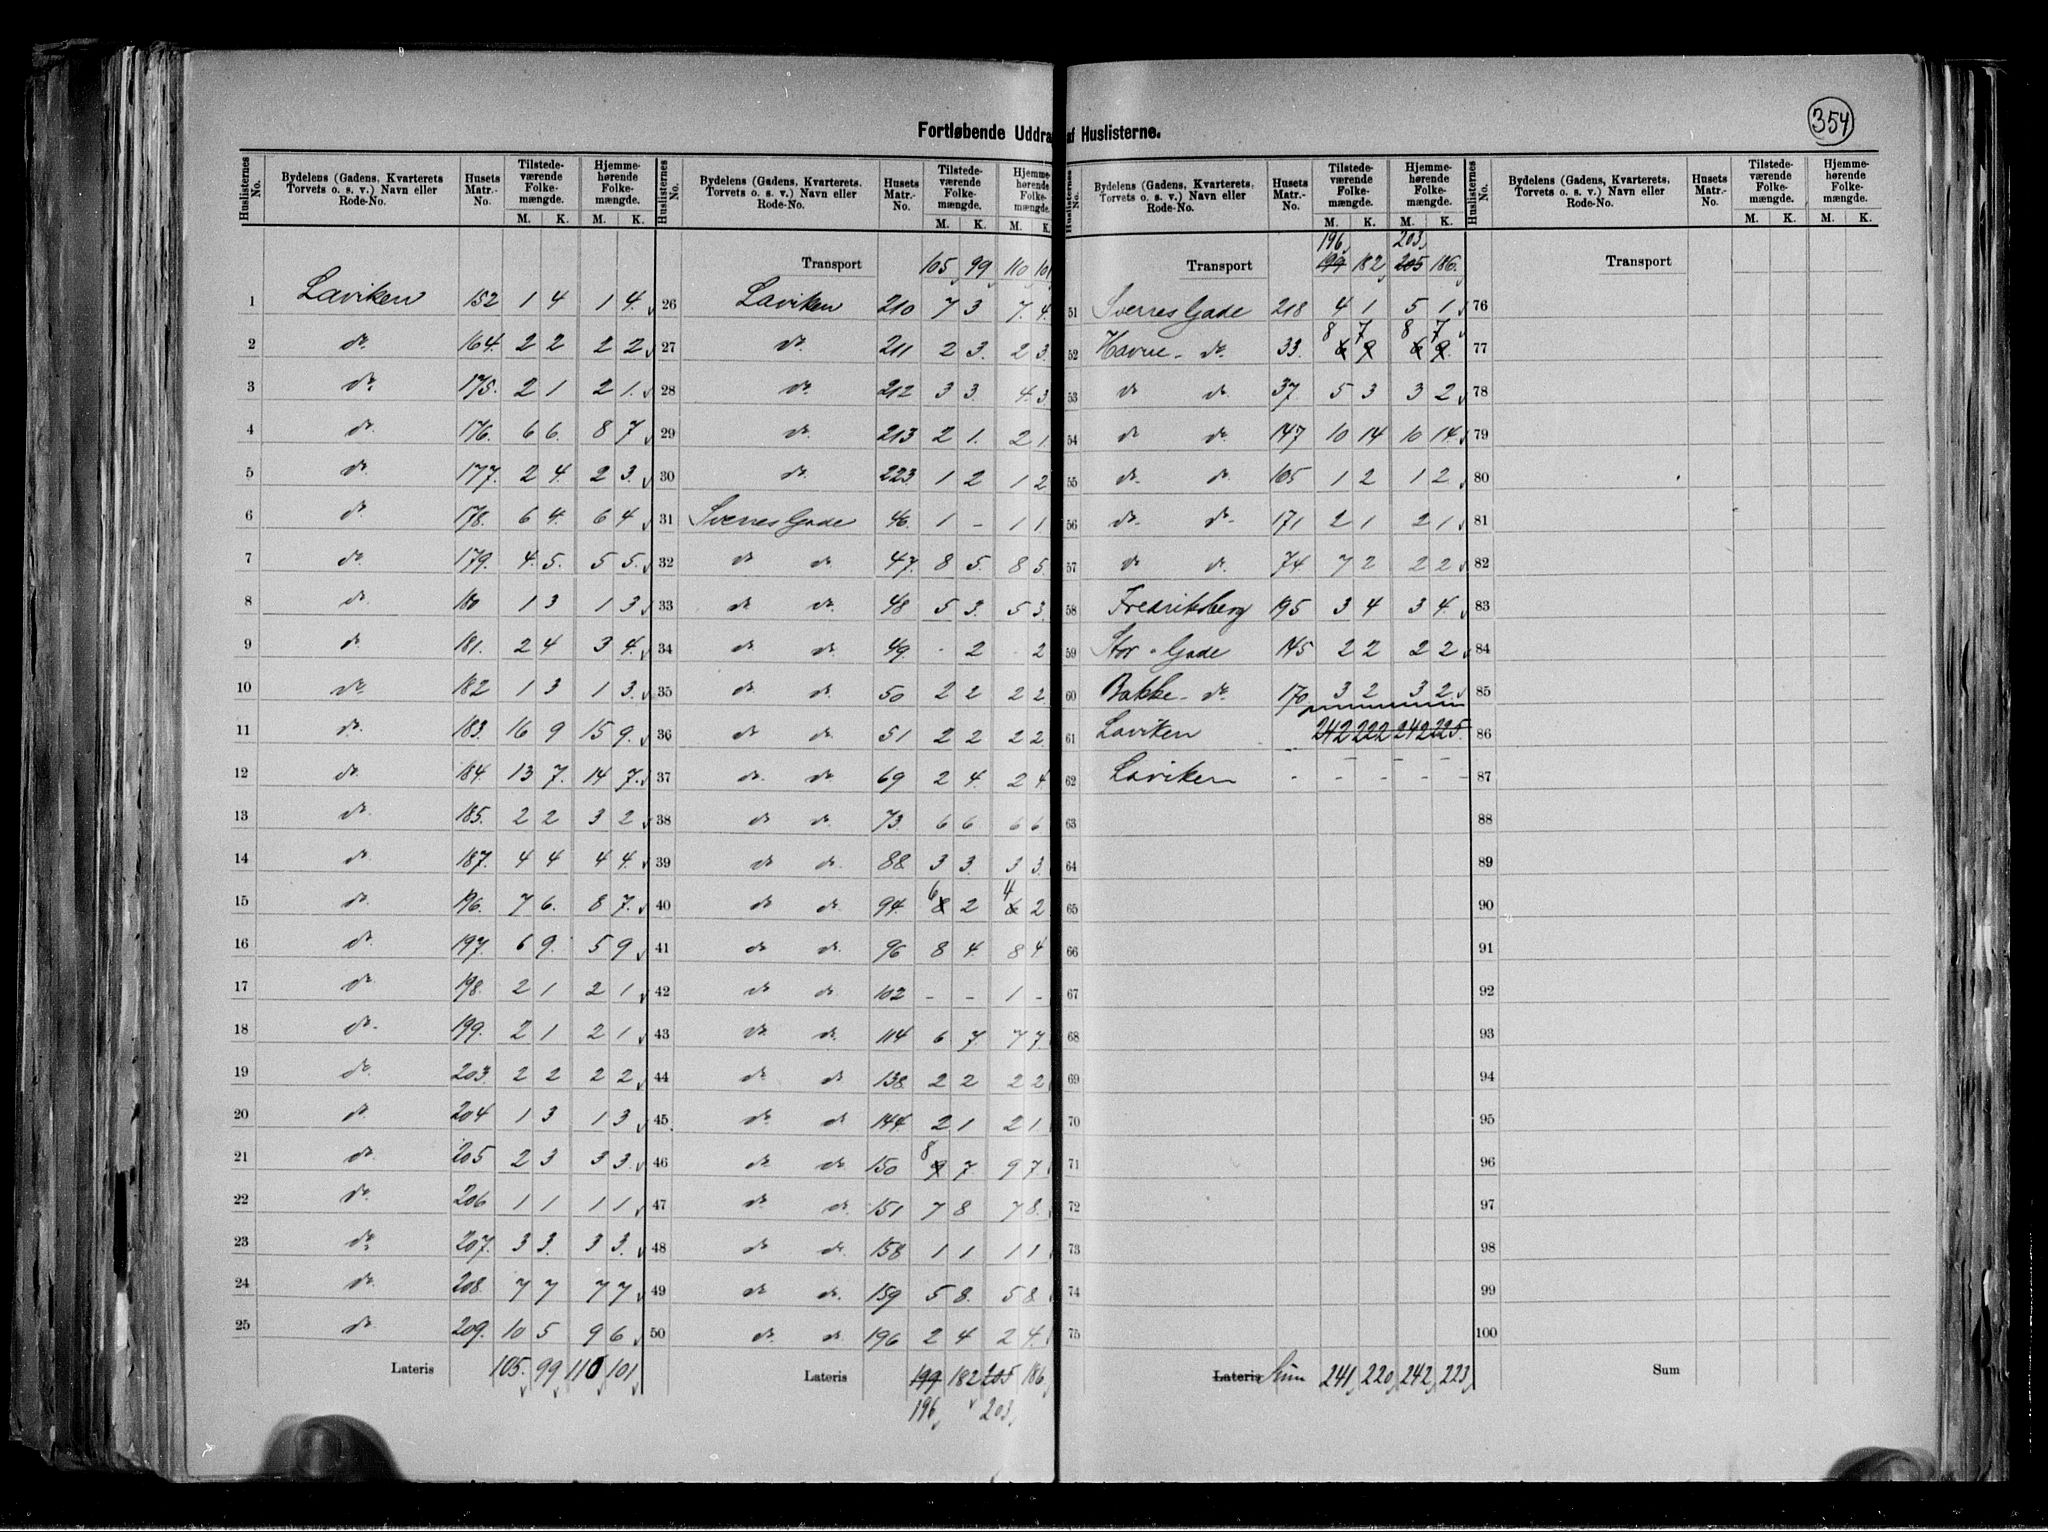 354
Fortløbende Uddra af Huslisterne.
Huslisternes No. Bydelens (Gadens, Kvarterets, Torvets o. s. v.) Navn eller Rode-No. Husets Matr.-No. Tilstede-værende Folke-mængde. M. K. Hjemme-hørende Folke-mængde. M. K.
1 Laviken 152 1 4 1 4
2 do 164 2 2 2 2
3 do 175 2 1 2 1
4 do 176 6 6 8 7
5 do 177 2 4 2 3
6 do 178 6 4 6 4
7 do 179 4 5 5 5
8 do 180 1 3 1 3
9 do 181 2 4 3 4
10 do 182 1 3 1 3
11 do 183 16 9 15 9
12 do 184 13 7 14 7
13 do 185 2 2 3 2
14 do 187 4 4 4 4
15 do 196 7 6 8 7
16 do 197 6 9 5 9
17 do 198 2 1 2 1
18 do 199 2 1 2 1
19 do 203 2 2 2 2
20 do 204 1 3 1 3
21 do 205 2 3 3 3
22 do 206 1 1 1 1
23 do 207 3 3 3 3
24 do 208 7 7 7 7
25 do 209 10 5 9 6
Lateris 105 99 110 101
Huslisternes No. Bydelens (Gadens, Kvarterets, Torvets o. s. v.) Navn eller Rode-No. Husets Matr.-No. Tilstede-værende Folke-mængde. M. K. Hjemme-hørende Folke-mængde. M. K.
Transport 105 99 110 101
26 Laviken 210 7 3 7 4
27 do 211 2 3 2 3
28 do 212 3 3 4 3
29 do 213 2 1 2 1
30 do 223 1 2 1 2
31 Sverres Gade 46 1 - 1 1
32 do do 47 8 5 8 5
33 do do 48 5 3 5 3
34 do do 49 - 2 - 2
35 do do 50 2 2 2 2
36 do do 51 2 2 2 2
37 do do 69 2 4 2 4
38 do do 73 6 6 6 6
39 do do 88 3 3 3 3
40 do do 94 8 6 2 6 4 2
41 do do 96 8 4 8 4
42 do do 102 - - 1 -
43 do do 114 6 7 7 7
44 do do 138 2 2 2 2
45 do do 144 2 1 2 1
46 do do 150 9 8 7 9 7
47 do do 151 7 8 7 8
48 do do 158 1 1 1 1
49 do do 159 5 8 5 8
50 do do 196 2 4 2 4
Lateris 199 182 205 186
196 203
Huslisternes No. Bydelens (Gadens, Kvarterets, Torvets o. s. v.) Navn eller Rode-No. Husets Matr.-No. Tilstede-værende Folke-mængde. M. K. Hjemme-hørende Folke-mængde. M. K.
196 203
Transport 199 182 205 186
51 Sverres Gade 218 4 1 5 1
52 Havne- do 33 6 8 9 7 6 8 9 7
53 do do 37 5 3 3 2
54 do do 147 10 14 10 14
55 do do 105 1 2 1 2
56 do do 171 2 1 2 1
57 do do 74 7 2 2 2
58 Fredriksberg 195 3 4 3 4
59 Stor-Gade 145 2 2 2 2
60 Bakke- do 170 3 2 3 2
61 Laviken 242 222 242 225
62 Laviken - - - - -
63
64
65
66
67
68
69
70
71
72
73
74
75
Lateris Sum 241 220 242 223
Huslisternes No. Bydelens (Gadens, Kvarterets, Torvets o. s. v.) Navn eller Rode-No. Husets Matr.-No. Tilstede-værende Folke-mængde. M. K. Hjemme-hørende Folke-mængde. M. K.
Transport
76
77
78
79
80
81
82
83
84
85
86
87
88
89
90
91
92
93
94
95
96
97
98
99
100
Sum